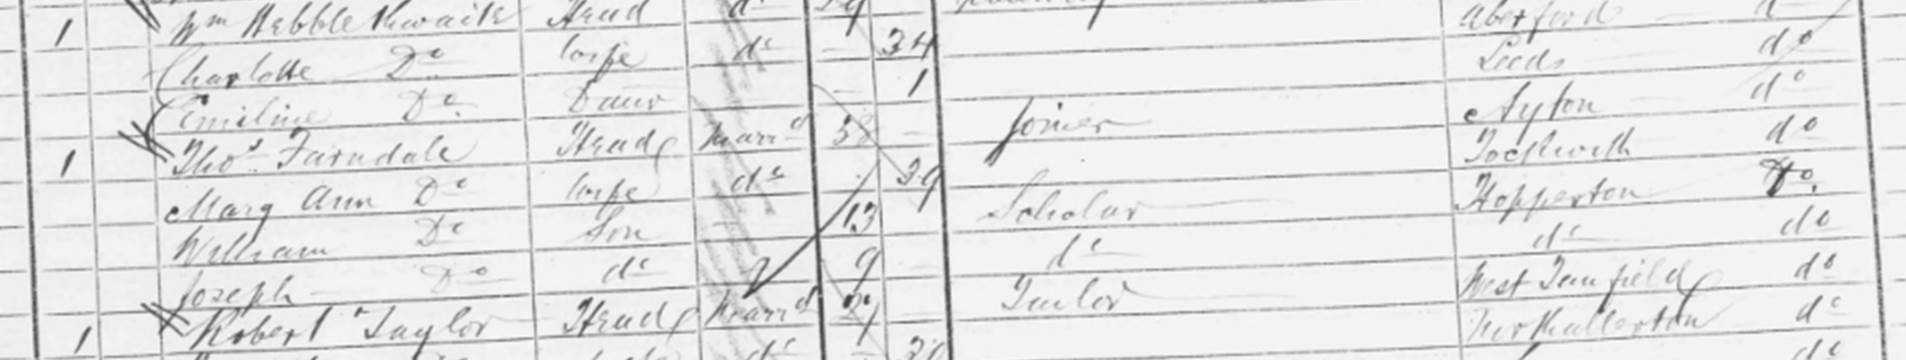 1 Wm Hebblethwaite Head do 39 Aberford d
Charlotte Do Wife do — 34 Leeds do
Emiline Do Daur 1 Ayton do
1 Thos Farndale Head Marrd 38 — Joiner Tockwith do
Mary Ann Do Wife do 39 Hopperton Do.
William Do Son 13 Scholar do do
Joseph Do do 9 do West Tanfield do
1 Robert Taylor Head Marrd Tailor Northallerton do
do do